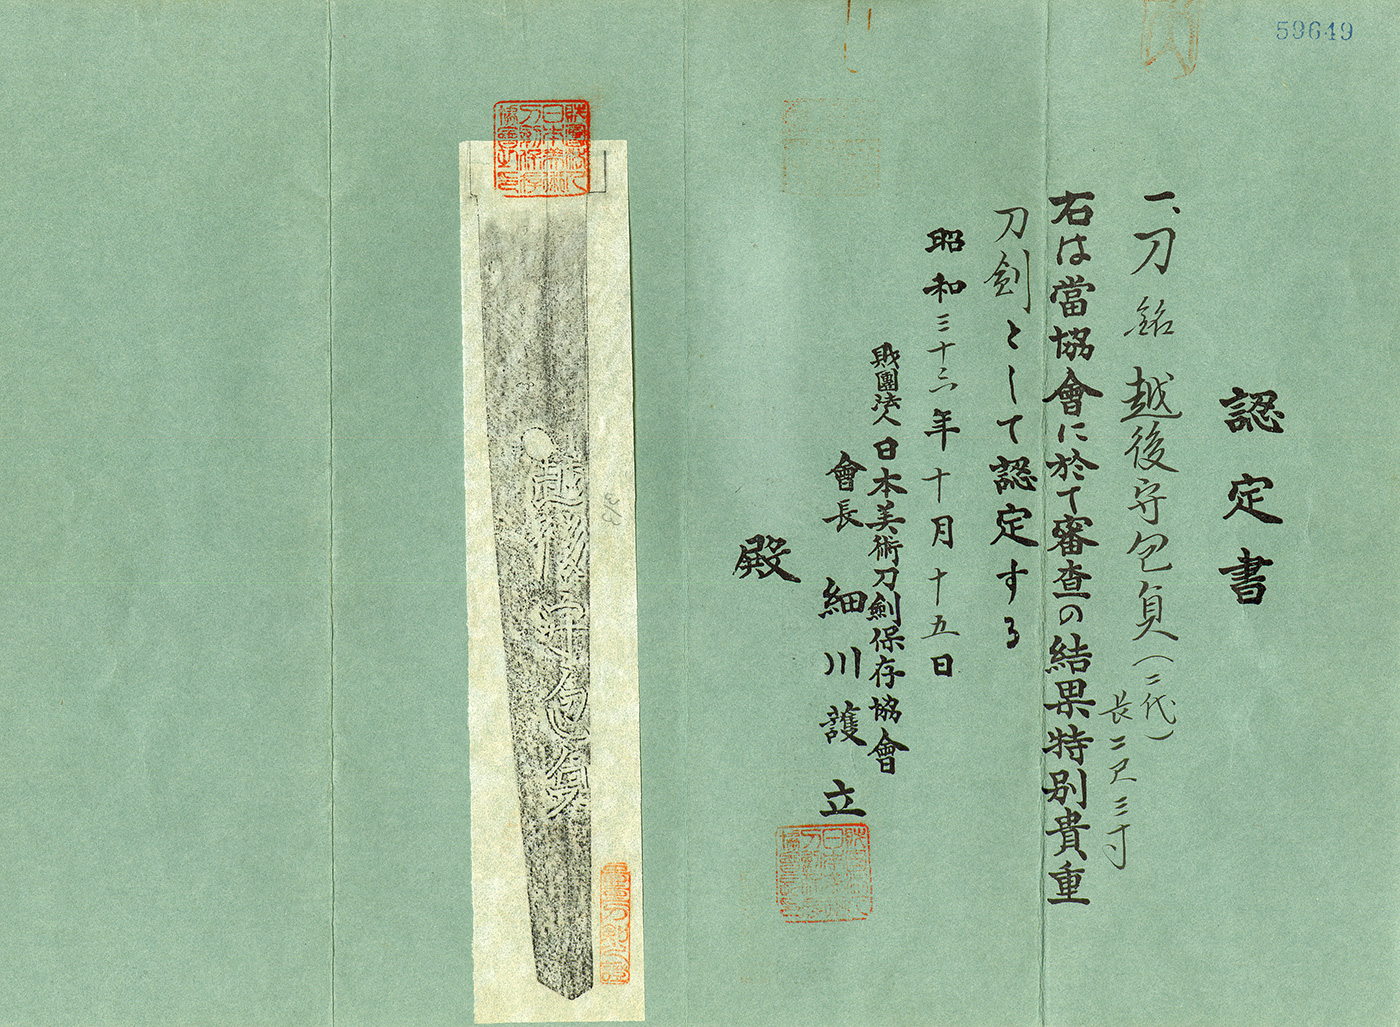 59649
認定書
一、刀 銘 越後守包貞(二代)
長二尺三寸
右は當協會に於て審査の結果特別貴重
刀劍として認定する
昭和三十三年十月十五日
財團法人日本美術刀劍保存協會
會長 細川護立
殿
越後守包貞